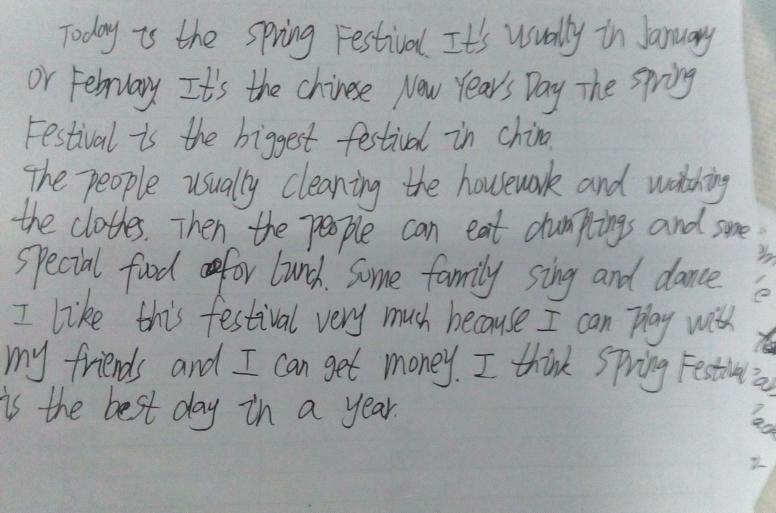 Today is the Spring Festival. It's usually in January
or February. It's the chinese New Year's Day The spring
Festival is the biggest festival in China.
The people usually cleaning the housework and watching
the clothes. Then the people can eat dumplings and some
special food for lunch. Some family sing and dance
I like this festival very much because I can play with
my friends and I can get money. I think Spring Festival
is the best day in a year.